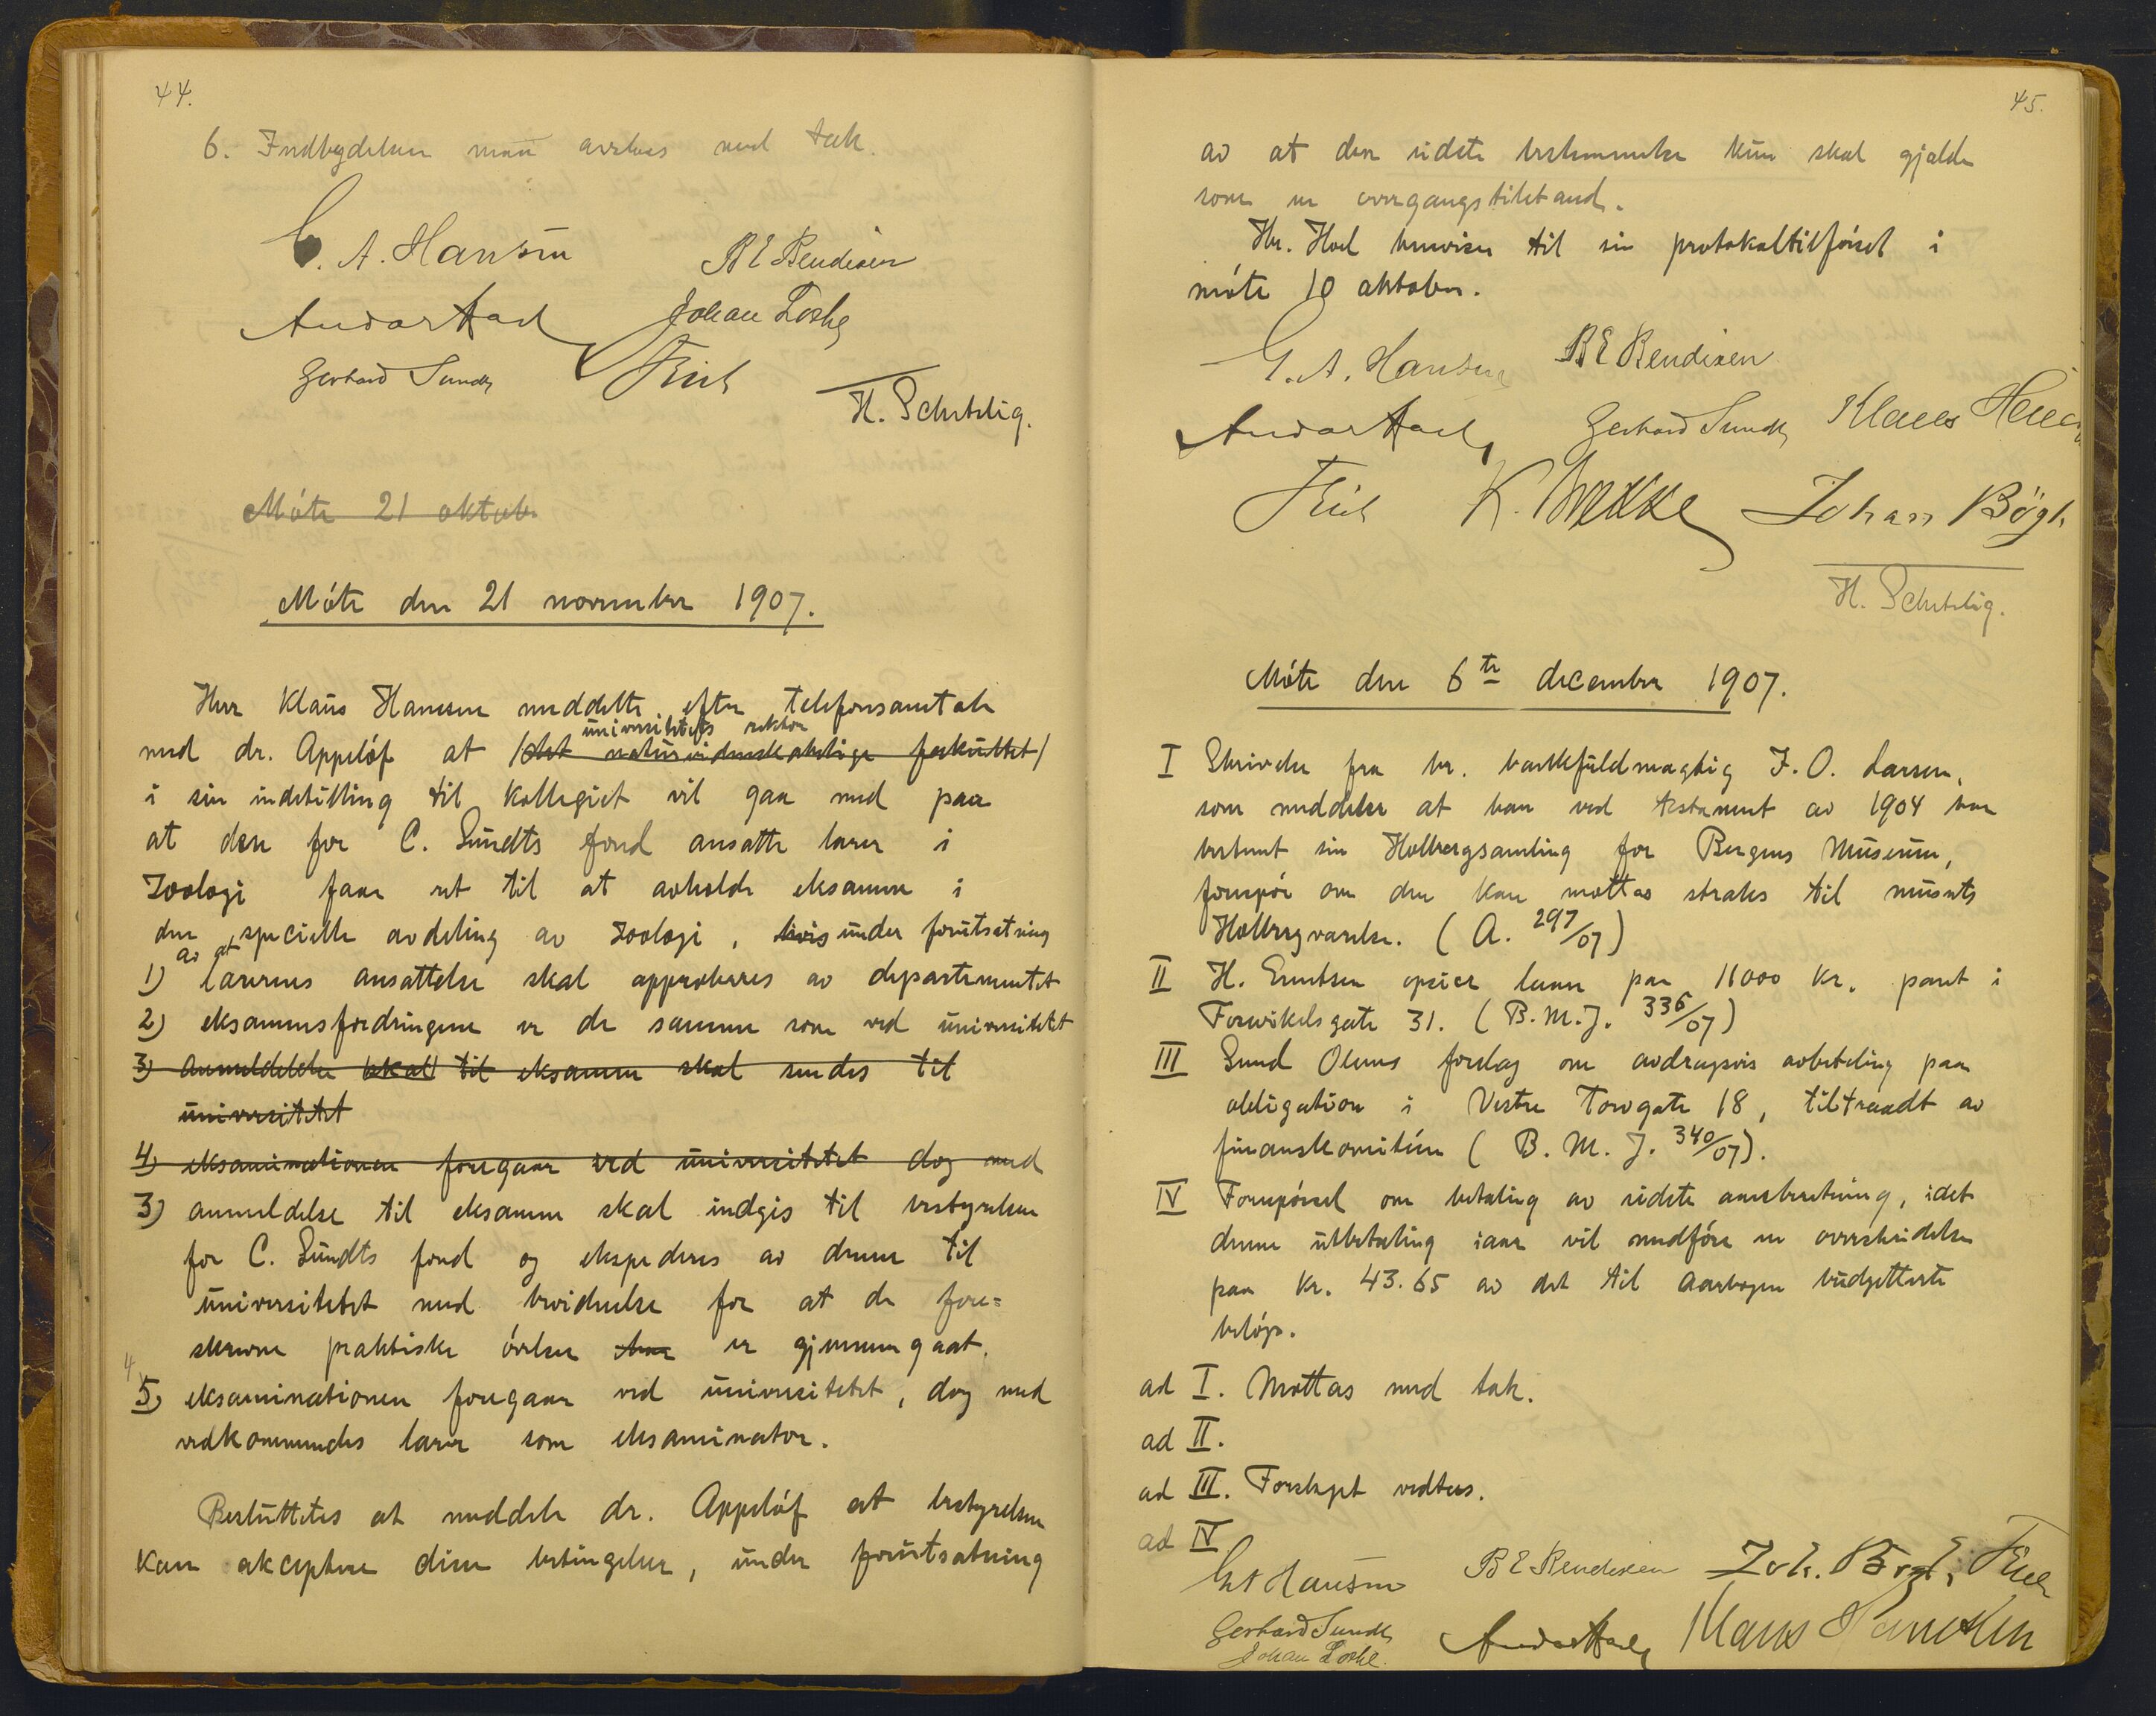 44.
6. Indbydelsen maa avslaaes med tak.
G. A. Hansen B E Bendixen
Johan Lothe
Gerhard Sundt
H. Schetelig.
Møte 21 oktober
Møte den 21 november 1907.
Herr Klaus Hanssen meddelte efter telefonsamtale
universitetets rektor
med dr. Appeløf at (det naturvidenskabelige fakultet)
i sin indstilling til kollegiet vil gaa med paa
at den for C. Sundts fond ansatte lærer i
zoologi faar ret til at avholde eksamen i
den specielle avdeling av zoologi, hvis under forutsætning
av at
1) lærerens ansættelse skal approberes av departementet
2) eksamensfordringene er de samme som ved universitetet
3) anmeldelse skal til eksamen skal sendes til
universitetet
4) eksaminationen foregaar ved universitetet dog med
3) anmeldelse til eksamen skal indgis til bestyrelsen
for C. Sundts fond og ekspederes av denne til
universitetet med bevidnelse for at de fore=
skrevne praktiske øvelser har er gjennemgaat.
4
5) eksaminationen foregaar ved universitetet, dog med
vedkommendes lærer som eksaminator.
Besluttedes at meddele dr. Appeløf at bestyrelsen
kan akceptere disse betingelser, under forutsætning
45.
av at den sidste bestemmelse kun skal gjælde
som en overgangstilstand.
Hr. Hoel henviser til sin protokoltilførsel i
møte 10 oktober.
G. A. Hansen B E Bendixen
Gerhard Sundt Klaus Hanssen
K. Brekke Johan Bøgh
H. Schetelig.
Møte den 6te december 1907.
I Skrivelse fra hr. bankfuldmægtig J. O. Larsen,
som meddeler at han ved testament av 1904 har
bestemt sin Holbergsamling for Bergens Museum,
forespør om den kan mottas straks til museets
Holbergværelse. (A. 297/07)
II H. Evertsen opsier laan paa 11000 kr. pant i
Forwikelsgate 31. (B.M.J. 336/07)
III Send Olsens forslag om avdragsvis avbetaling paa
obligation i Vestre Torvgate 18, tiltraadt av
finanskomitéen (B. M. J. 340/07).
IV Forespørsel om betaling av sidste aarsberetning, idet
denne utbetaling iaar vil medføre en overskridelse
paa kr. 43.65 av det til aarbogen budgetterte
beløp.
ad I. Mottas med tak.
ad II.
ad III. Forslaget vedtas.
ad IV
G A Hansen B E Bendixen Joh. Bøgh
Gerhard Sundt Klaus Hanssen
Johan Lothe.